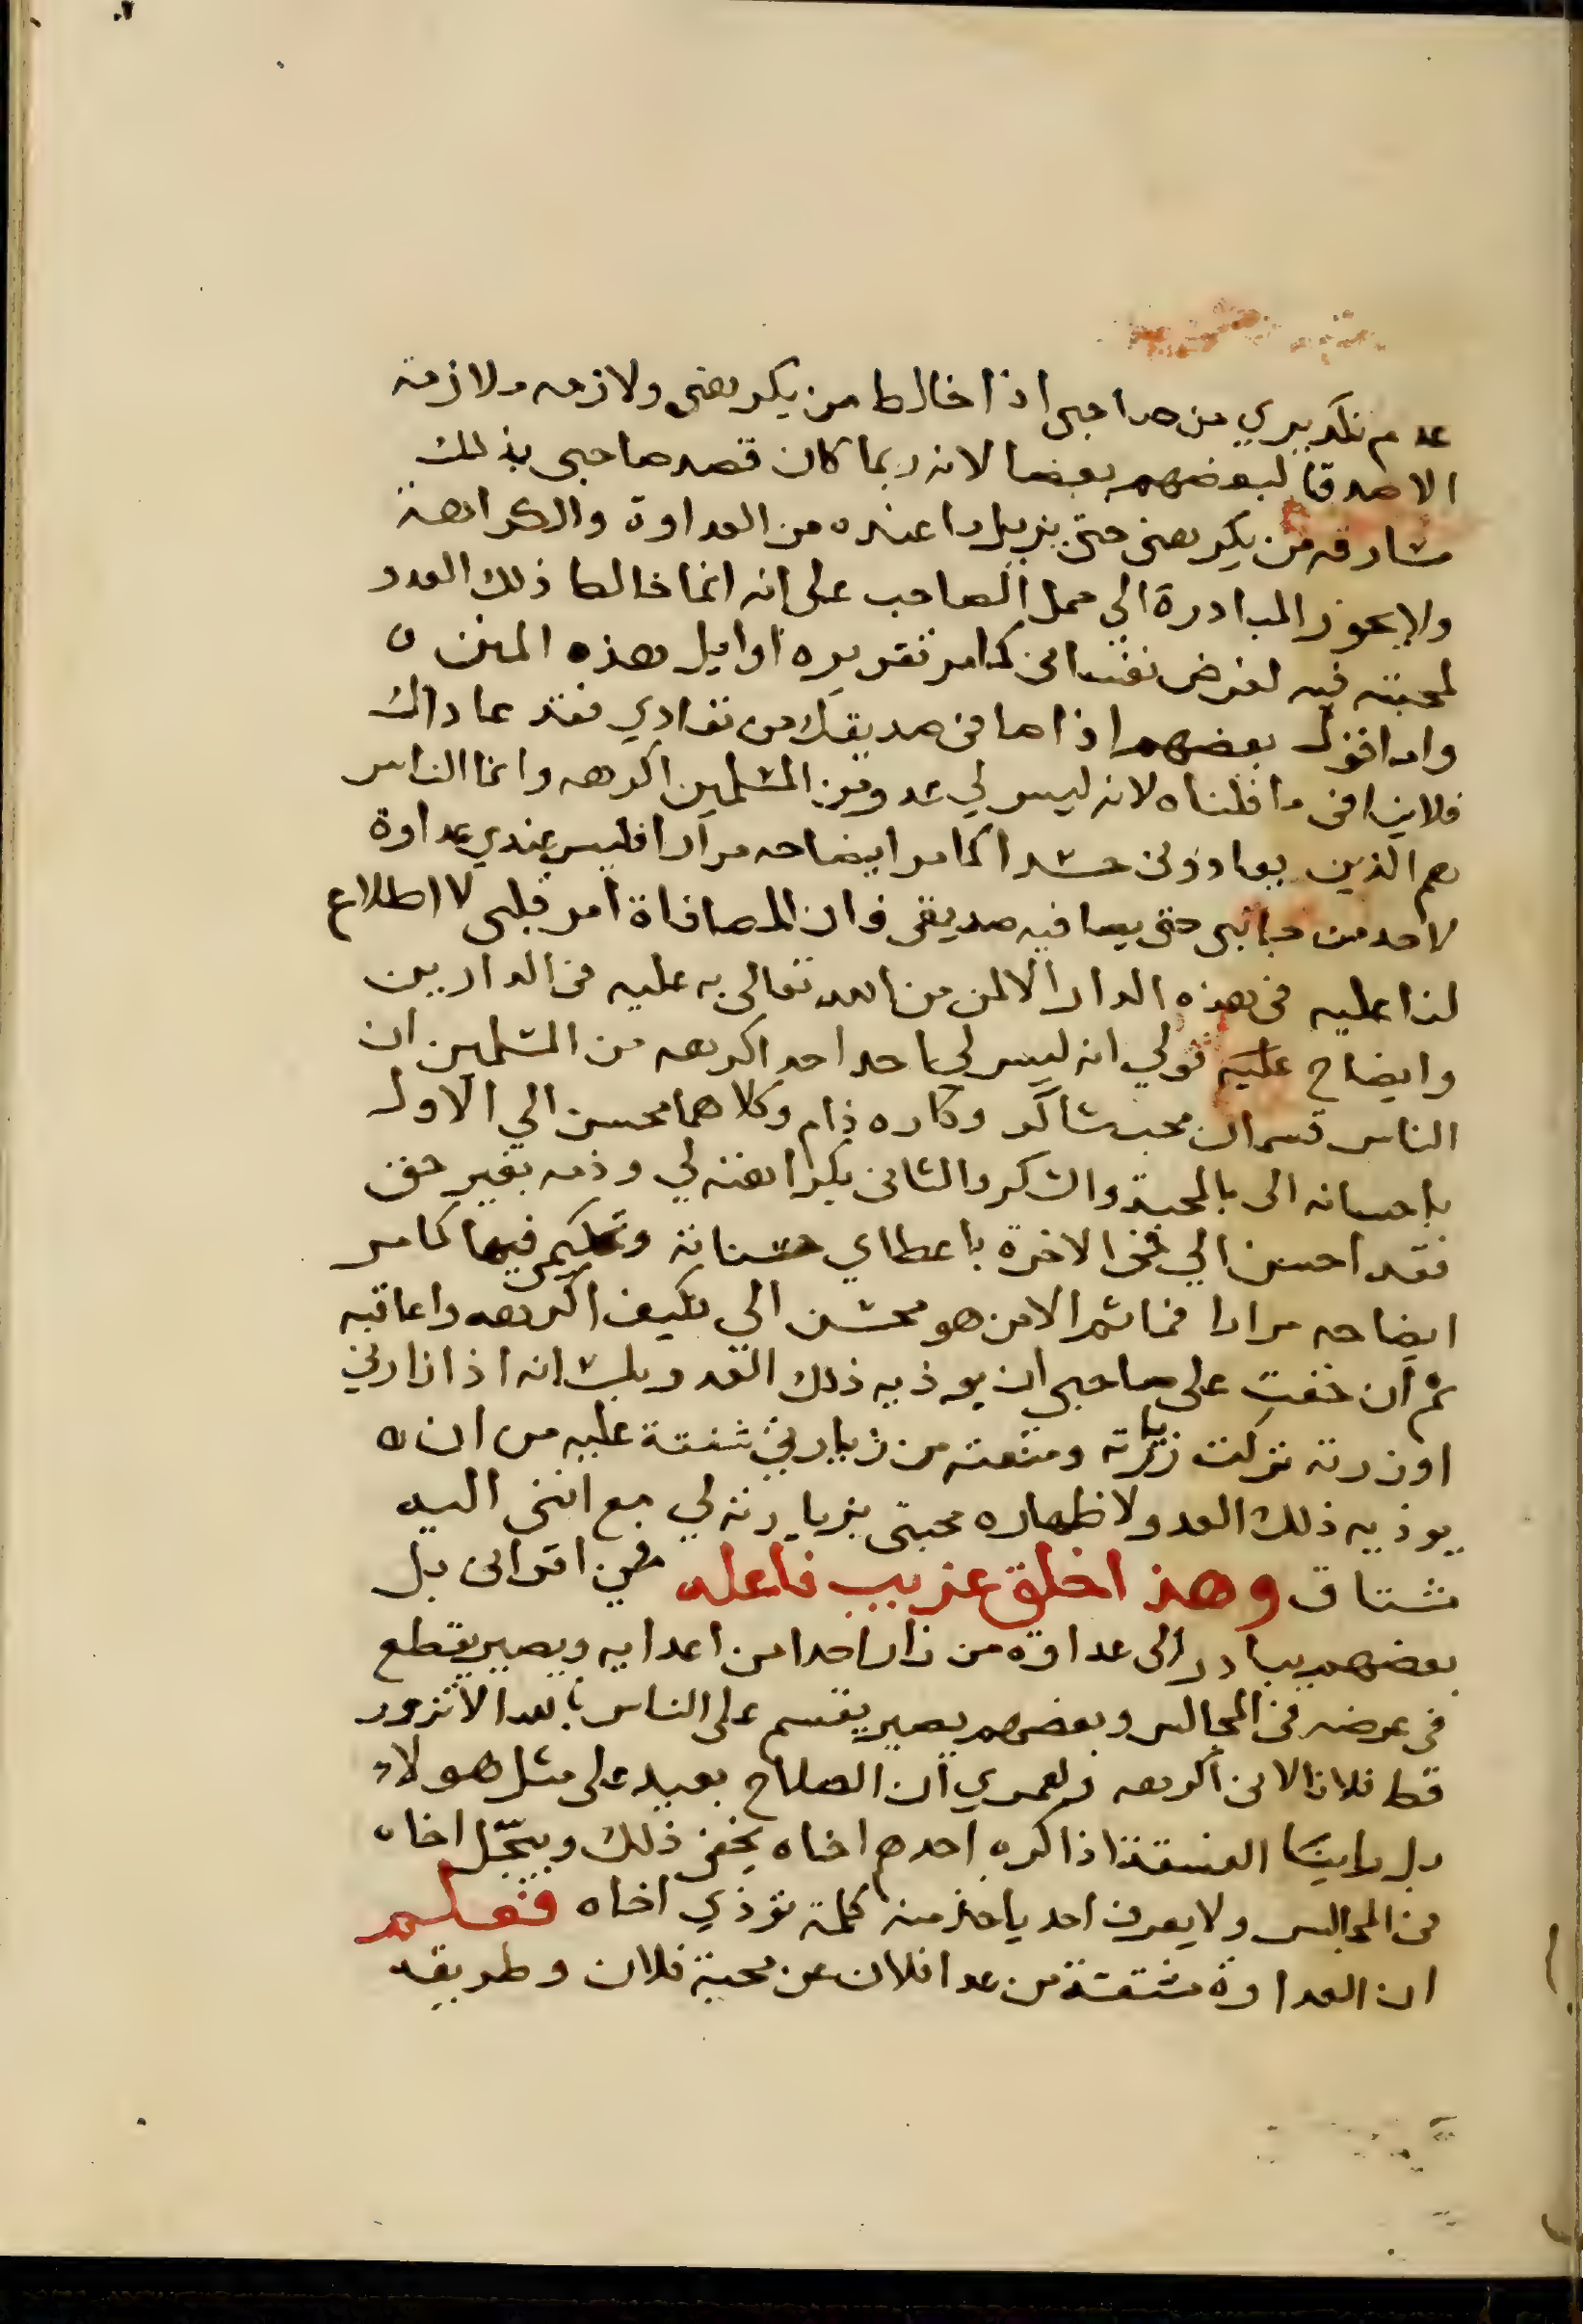 عدم تكديري من صاحبي اذا خالط من يكرهني ولازمه ملازمة
الاصدقا لبعضهم بعضا لانه ربما كان قصد صاحبي بذلك
مسارقه من يكرهني حتى يزيل ما عنده من العداوة والكراهة
ولا يجوز المبادرة الي حمل الصاحب على انه انما خالط ذلك العدو
لمحبته فيه لغرض نفساني كما مر تقريره اوايل هذه المنن
واما قول بعضهم اذا صافى صديقك من تعادي فقد عاداك
فلا ينافى ما قلناه لانه ليس لي عدو من المسلمين اكرهه وانما الناس
هم الذين يعادوني حسدا كما مر ايضاحه مرارا فليس عندي عداوة
لاحد من جانبي حتى يصافيه صديقي فان المصافاة امر قلبي لا اطلاع
لنا عليه في هذه الدار الا لمن من الله تعالى به عليه في الدارين
وايضاح عليه قولي انه ليس لي احد احد اكرهه من المسلمين ان
الناس قسمان محب شاكر وكاره ذام وكلاهما محسن الي الاول
باحسانه الى بالمحبة والشكر والثانى بكراهته لي وذمه بغير حق
فقد احسن الي في الاخرة باعطاي حسناته وتحكيمي فيها كما مر
ايضاحه مرارا فما ثم الا من هو محسن الي فكيف اكرهه واعاقبه
ثم ان خفت على صاحبي ان يوذيه ذلك العدو بلسانه اذا زارني
او زرته تركت زيارته ومنعته من زيارتي شفقة عليه من انه
يوذيه ذلك العدو لاظهاره محبتى بزيارته لي مع انني اليه
مشتاق وهذا خلق غريب فاعله من اقرانى بل
بعضهم يبادر الى عداوة من زار احدا من اعدايه ويصير يقطع
في عرضه في المجالس وبعضهم يصير يقسم على الناس بالله الا تزور
قط فلانا لانى اكرهه ولعمري ان الصلاح بعيد على مثل هولاء
بل راينا الفسقة اذا كره احدهم اخاه يخفى ذلك ويبجّل اخاه
في المجالس ولا يعرف احد ياخذ منه كلمة توذي اخاه فعلم
ان العداوة مشتقة من عدا فلان عن محبة فلان وطريقه